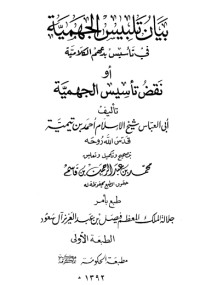 بيان تلبيس الجهمية
في تأسيس بدعهم الكلامية
أو
نقض تأسيس الجهمية
تأليف
أبي العباس شيخ الإسلام أحمد بن تيمية
قدس الله روحه
بتصحيح وتكميل وتعليق
محمد بن عبد الرحمن بن قاسم
حقوق الطبع محفوظة له
طبع بأمر
جلالة الملك المعظم فيصل بن عبد العزيز آل سعود
الطبعة الأولى
مطبعة الحكومة
١٣٩٢